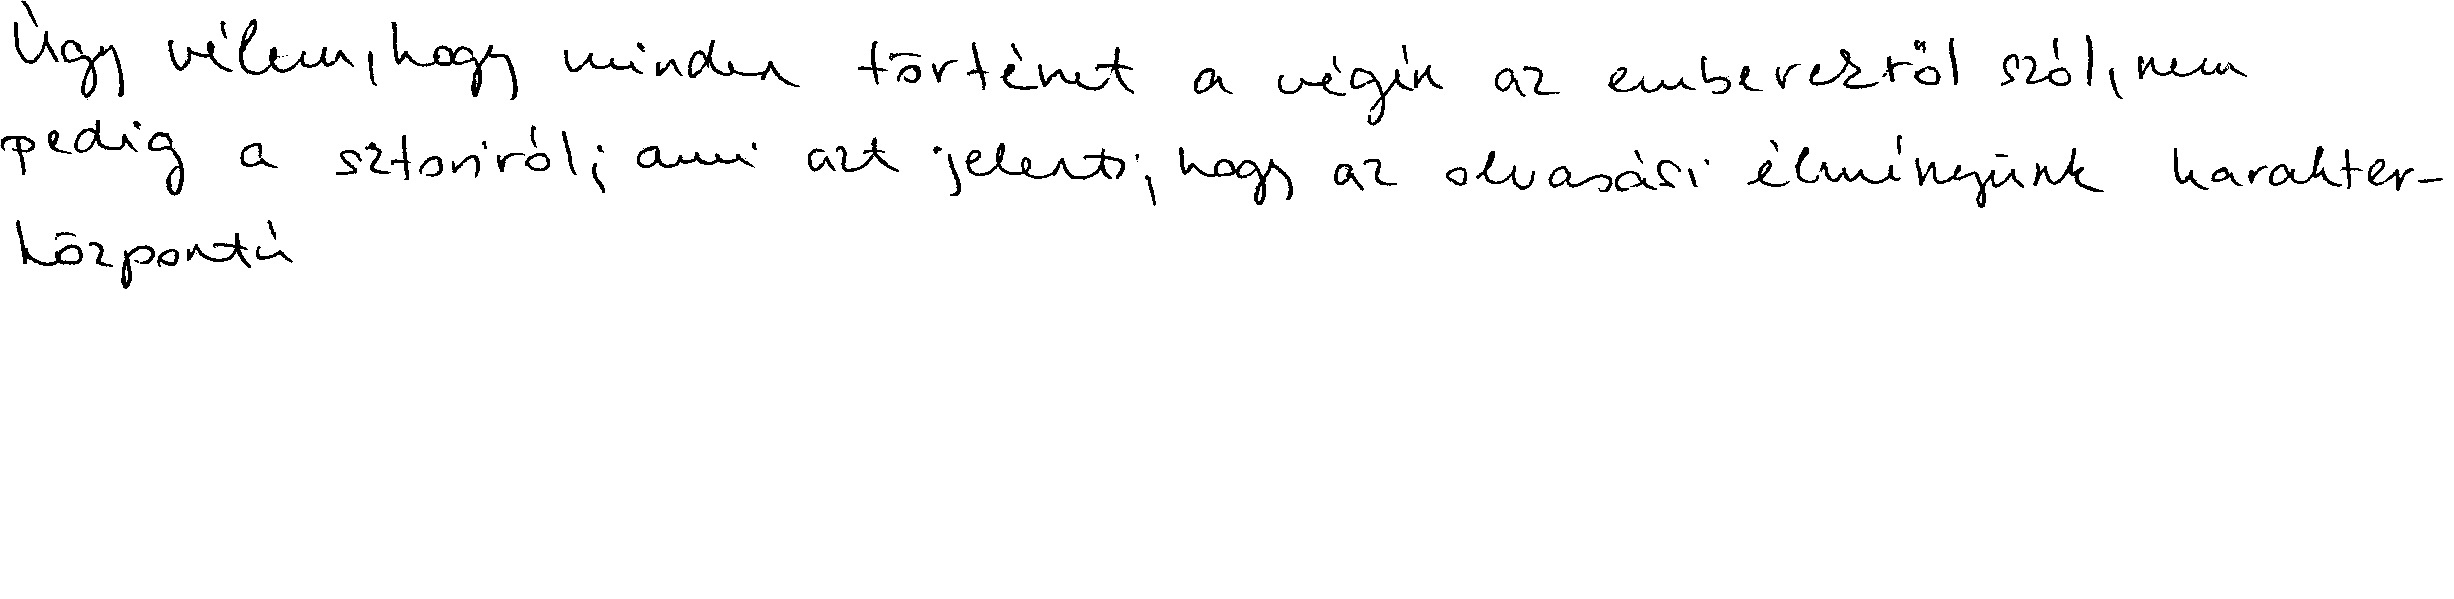 Úgy vélem, hogy minden történet a végén az emberektől szól, nem
pedig a sztoriról; ami azt jelenti, hogy az olvasási élményünk karakter-
központú